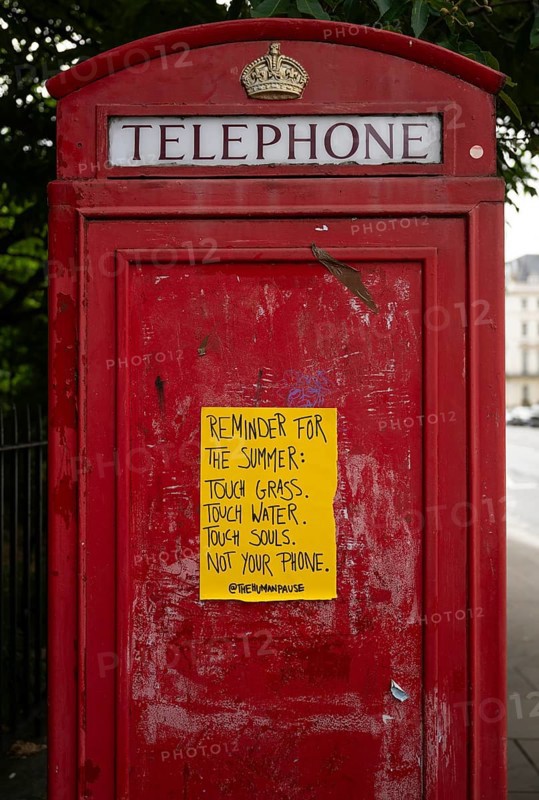 TELEPHONE
REMINDER FOR
THE SUMMER:
TOUCH GRASS.
TOUCH WATER.
TOUCH SOULS.
NOT YOUR PHONE.
@THEHUMANPAUSE
PHOTO12